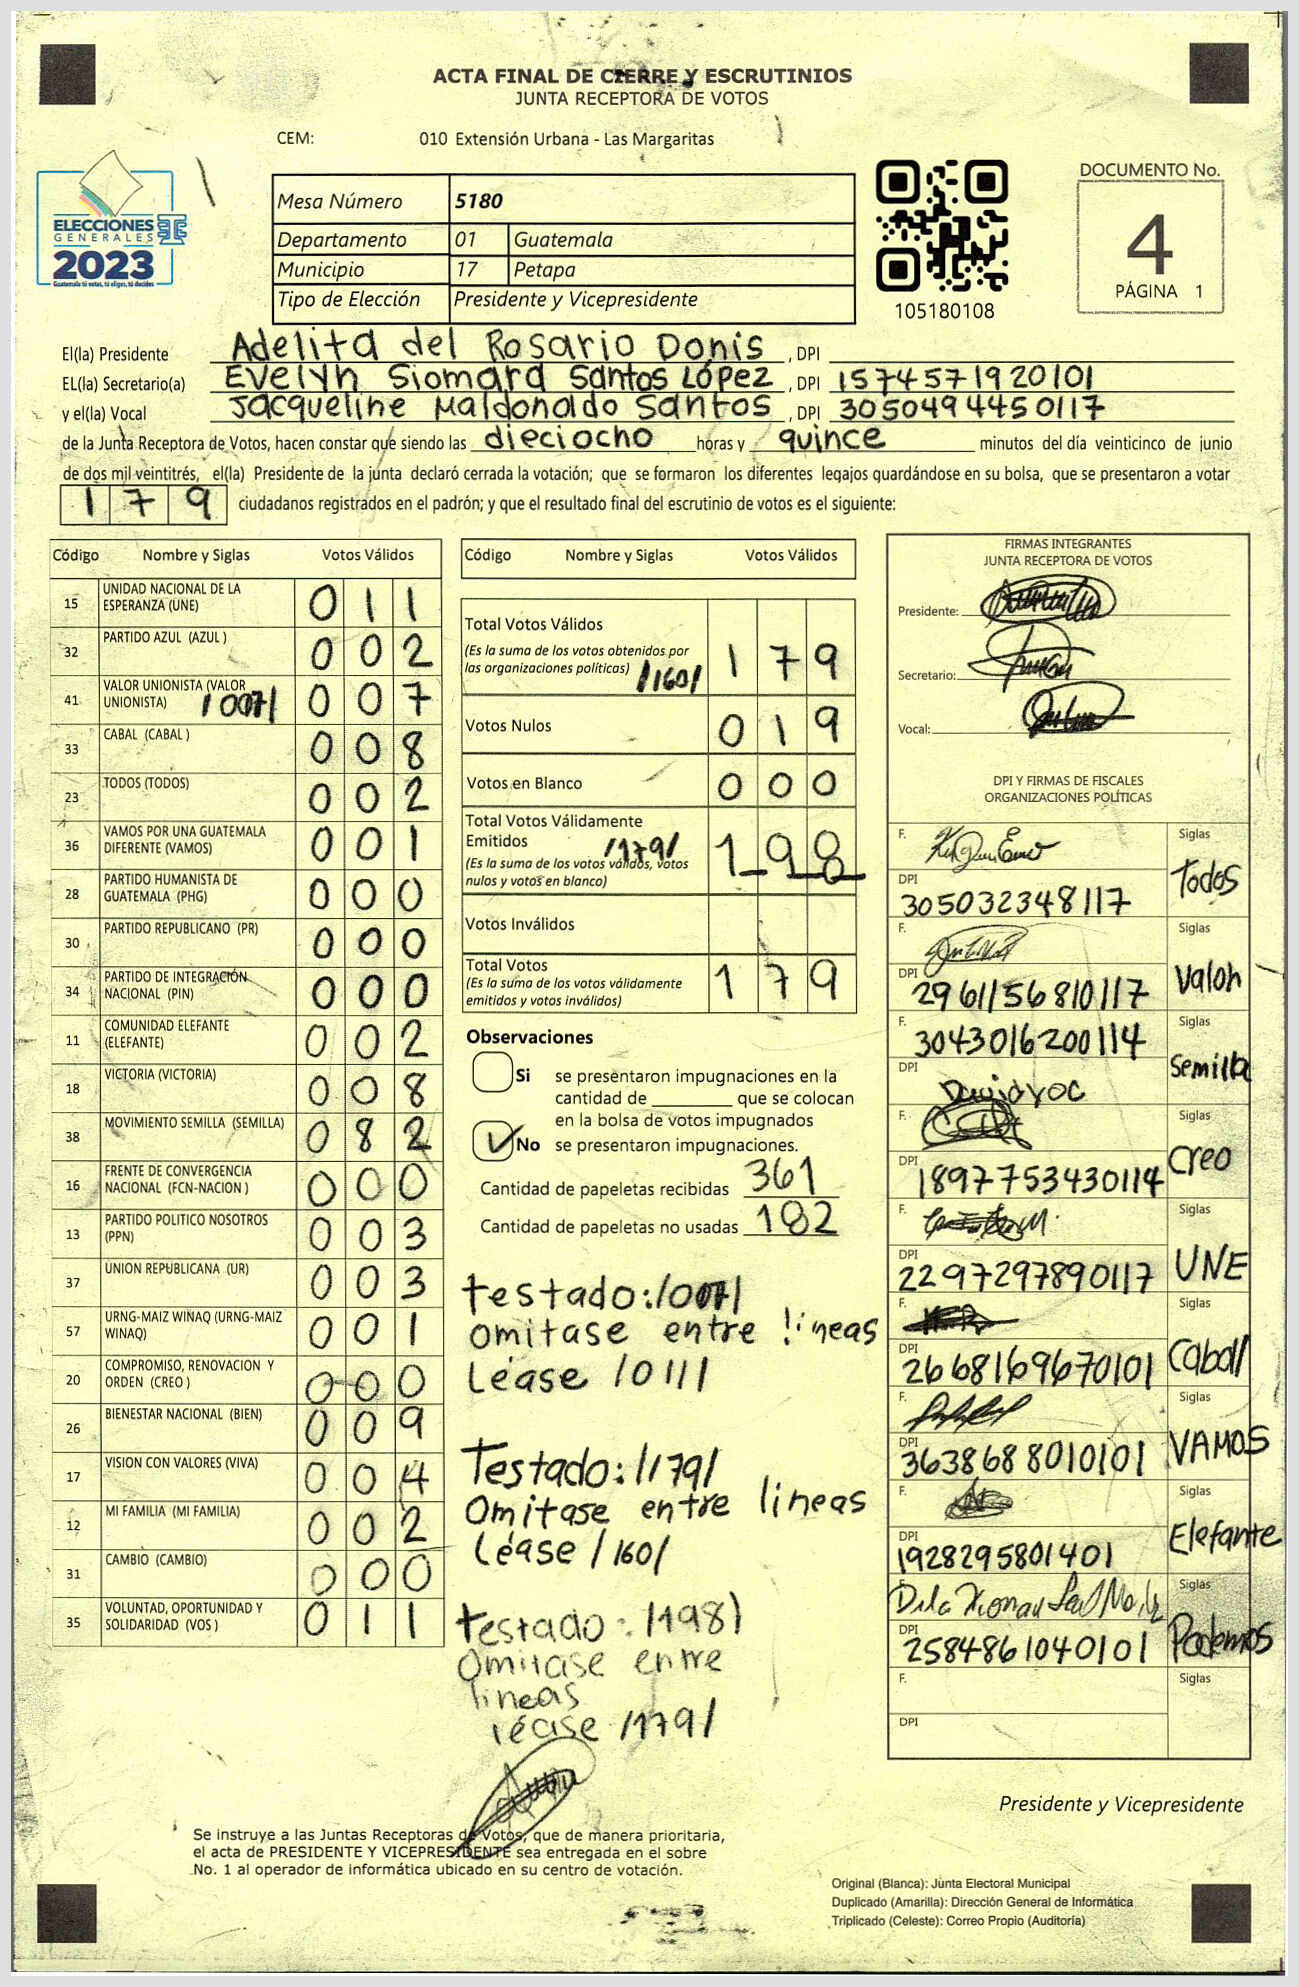 ACTA FINAL DE CIERRE Y ESCRUTINIOS
JUNTA RECEPTORA DE VOTOS
CEM: 010 Extensión Urbana - Las Margaritas
ELECCIONES
GENERALES
2023
Guatemala tú votas, tú eliges, tú decides
Mesa Número 5180
Departamento 01 Guatemala
Municipio 17 Petapa
Tipo de Elección Presidente y Vicepresidente
105180108
DOCUMENTO No.
4
PÁGINA 1
El(la) Presidente Adelita del Rosario Donis , DPI
EL(la) Secretario(a) Evelyn Siomara Santos López , DPI 1574571920101
y el(la) Vocal Jacqueline Maldonado Santos , DPI 3050494450117
de la Junta Receptora de Votos, hacen constar que siendo las dieciocho horas y quince minutos del día veinticinco de junio
de dos mil veintitrés, el(la) Presidente de la junta declaró cerrada la votación; que se formaron los diferentes legajos guardándose en su bolsa, que se presentaron a votar
179 ciudadanos registrados en el padrón; y que el resultado final del escrutinio de votos es el siguiente:
Código Nombre y Siglas Votos Válidos
15 UNIDAD NACIONAL DE LA ESPERANZA (UNE) 0 1 1
32 PARTIDO AZUL (AZUL ) 0 0 2
41 VALOR UNIONISTA (VALOR UNIONISTA) /007/ 0 0 7
33 CABAL (CABAL ) 0 0 8
23 TODOS (TODOS) 0 0 2
36 VAMOS POR UNA GUATEMALA DIFERENTE (VAMOS) 0 0 1
28 PARTIDO HUMANISTA DE GUATEMALA (PHG) 0 0 0
30 PARTIDO REPUBLICANO (PR) 0 0 0
34 PARTIDO DE INTEGRACIÓN NACIONAL (PIN) 0 0 0
11 COMUNIDAD ELEFANTE (ELEFANTE) 0 0 2
18 VICTORIA (VICTORIA) 0 0 8
38 MOVIMIENTO SEMILLA (SEMILLA) 0 8 2
16 FRENTE DE CONVERGENCIA NACIONAL (FCN-NACION ) 0 0 0
13 PARTIDO POLITICO NOSOTROS (PPN) 0 0 3
37 UNION REPUBLICANA (UR) 0 0 3
57 URNG-MAIZ WINAQ (URNG-MAIZ WINAQ) 0 0 1
20 COMPROMISO, RENOVACION Y ORDEN (CREO ) 0 0 0
26 BIENESTAR NACIONAL (BIEN) 0 0 9
17 VISION CON VALORES (VIVA) 0 0 4
12 MI FAMILIA (MI FAMILIA) 0 0 2
31 CAMBIO (CAMBIO) 0 0 0
35 VOLUNTAD, OPORTUNIDAD Y SOLIDARIDAD (VOS ) 0 1 1
Código Nombre y Siglas Votos Válidos
Total Votos Válidos
(Es la suma de los votos obtenidos por
las organizaciones políticas) /160/ 1 7 9
Votos Nulos 0 1 9
Votos en Blanco 0 0 0
Total Votos Válidamente
Emitidos /179/ 1 9 8
(Es la suma de los votos válidos, votos
nulos y votos en blanco)
Votos Inválidos
Total Votos 1 7 9
(Es la suma de los votos válidamente
emitidos y votos inválidos)
Observaciones
Si se presentaron impugnaciones en la
cantidad de ________ que se colocan
en la bolsa de votos impugnados
No se presentaron impugnaciones.
Cantidad de papeletas recibidas 361
Cantidad de papeletas no usadas 182
testado:/007/
omitase entre lineas
Léase /011/
Testado: /179/
Omitase entre lineas
Léase /160/
testado: /198/
omitase entre
lineas
léase /179/
FIRMAS INTEGRANTES
JUNTA RECEPTORA DE VOTOS
Presidente:
Secretario:
Vocal:
DPI Y FIRMAS DE FISCALES
ORGANIZACIONES POLÍTICAS
F. Siglas
DPI 305032348117 Todos
F. Siglas
DPI 2961156810117 Valor
F. 3043016200114 Siglas
DPI Semilla
F. Siglas
DPI 1897753430114 Creo
F. Siglas
DPI 2297297890117 UNE
F. Siglas
DPI 2668169670101 Caball
F. Siglas
DPI 3638688010101 VAMOS
F. Siglas
DPI 1928295801401 Elefante
F. Siglas
DPI 2584861040101 Podemos
F. Siglas
DPI
Presidente y Vicepresidente
Se instruye a las Juntas Receptoras de Votos, que de manera prioritaria,
el acta de PRESIDENTE Y VICEPRESIDENTE sea entregada en el sobre
No. 1 al operador de informática ubicado en su centro de votación.
Original (Blanca): Junta Electoral Municipal
Duplicado (Amarilla): Dirección General de Informática
Triplicado (Celeste): Correo Propio (Auditoría)